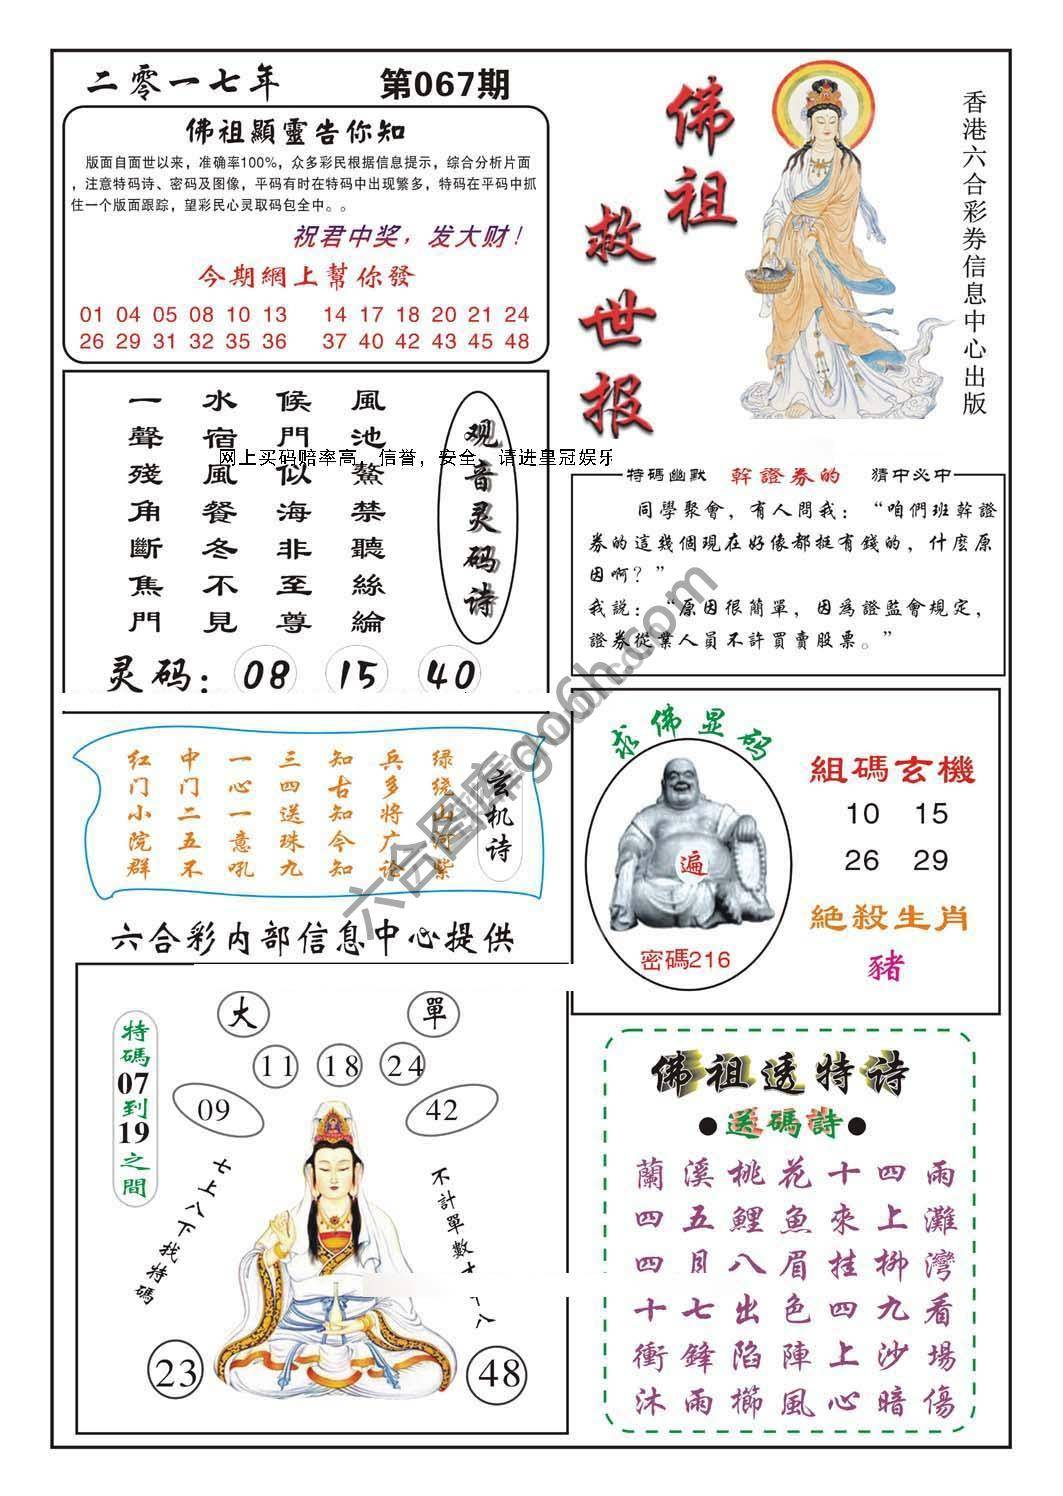 二零一七年 第067期
佛祖顯靈告你知
版面自面世以来，准确率100%，众多彩民根据信息提示，综合分析片面
，注意特码诗、密码及图像，平码有时在特码中出现繁多，特码在平码中抓
住一个版面跟踪，望彩民心灵取码包全中。。
祝君中奖，发大财！
今期網上幫你發
01 04 05 08 10 13 14 17 18 20 21 24
26 29 31 32 35 36 37 40 42 44 45 48
佛祖
救世报
香港六合彩券信息中心出版
观音灵码诗
風池鰲禁聽絲綸
侯門似海非至尊
水宿風餐冬不見
一聲殘角斷焦門
网上买码赔率高，信誉，安全，请进皇冠娱乐
灵码：08 15 40
特碼幽默 幹證券的 猜中必中
同學聚會，有人問我：“咱們班幹證
券的這幾個現在好像都挺有錢的，什麽原
因啊？”
我説：“原因很簡單，因爲證監會規定，
證券從業人員不許買賣股票。”
玄机诗
绿绕山河紫
兵多将广论
知古知今知
三四送珠九
一心一意吼
中门二五不
红门小院群
六合彩内部信息中心提供
求佛显码
遍
密碼216
組碼玄機
10 15
26 29
絶殺生肖
豬
特碼07到19之間
大 單
11 18 24
09 42
七上八下找特碼
不計單數
八
23 48
佛祖透特诗
●送碼詩●
蘭溪桃花十四雨
四五鯉魚來上灘
四月八眉挂柳灣
十七出色四九看
衝鋒陷陣上沙場
沐雨櫛風心暗傷
六合图库go6h.com